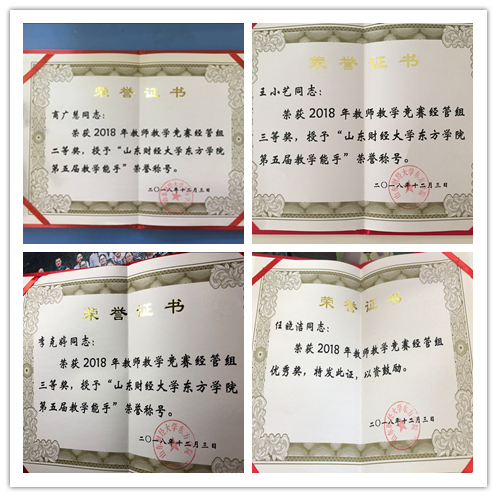 荣誉证书
商广慧同志：
荣获2018年教师教学竞赛经管组
二等奖，授予“山东财经大学东方学院
第五届教学能手”荣誉称号。
二〇一八年十二月三日
荣誉证书
王小艺同志：
荣获2018年教师教学竞赛经管组
三等奖，授予“山东财经大学东方学院
第五届教学能手”荣誉称号。
二〇一八年十二月三日
荣誉证书
李克爵同志：
荣获2018年教师教学竞赛经管组
三等奖，授予“山东财经大学东方学院
第五届教学能手”荣誉称号。
二〇一八年十二月三日
荣誉证书
任晓洁同志：
荣获2018年教师教学竞赛经管组
优秀奖，特发此证，以资鼓励。
二〇一八年十二月三日